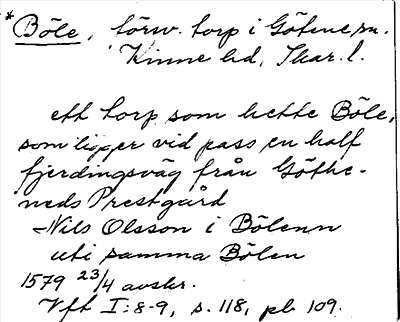 * Böle, försv. torp i Götene sn.
Kinne hd, Skar. l.
ett torp som hette Böle,
som ligger vid pass en half
fjerdingsväg från Göthe-
neds Prestgård
- Nils Olsson i Bölenn
uti samma Bölen
1579 23/4 avskr.
Vft I:8-9, s. 118, pb 109.